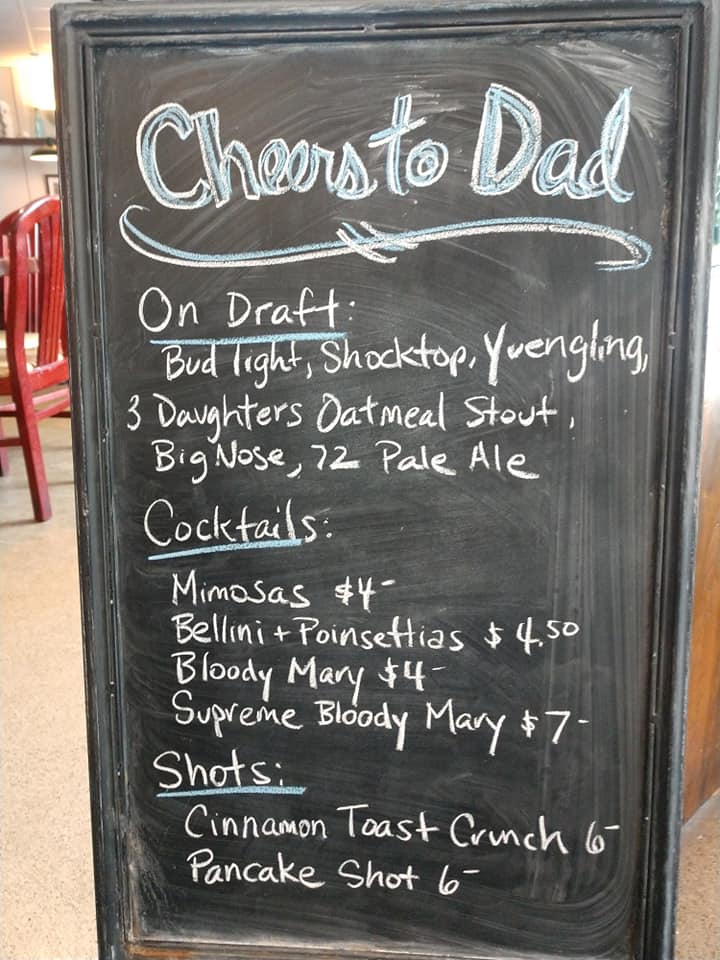 Cheers to Dad
On Draft:
Bud light, Shocktop, Yuengling,
3 Daughters Oatmeal Stout,
Big Nose, 72 Pale Ale
Cocktails:
Mimosas $4-
Bellini + Poinsettias $4.50
Bloody Mary $4-
Supreme Bloody Mary $7-
Shots:
Cinnamon Toast Crunch 6-
Pancake Shot 6-